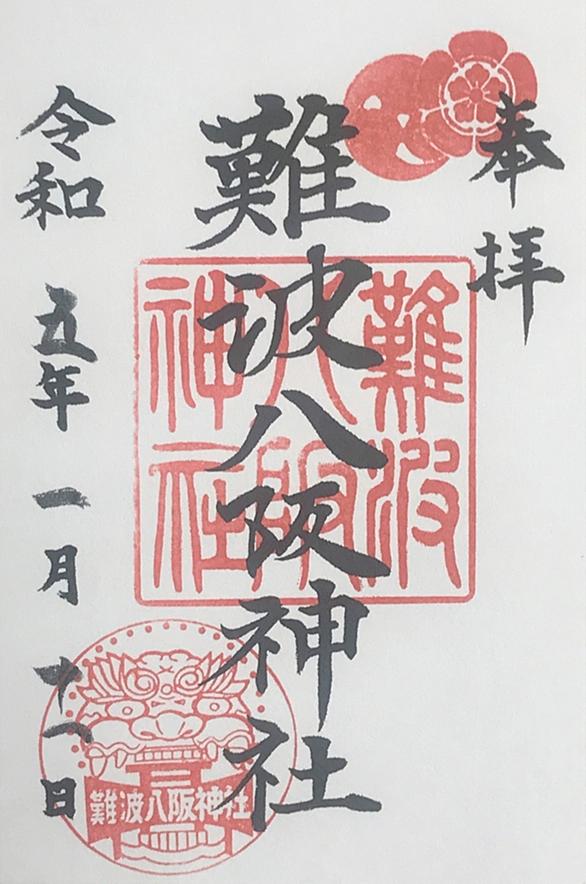 奉拝
難波八阪神社
難波八阪神社
令和五年一月十日
難波八阪神社